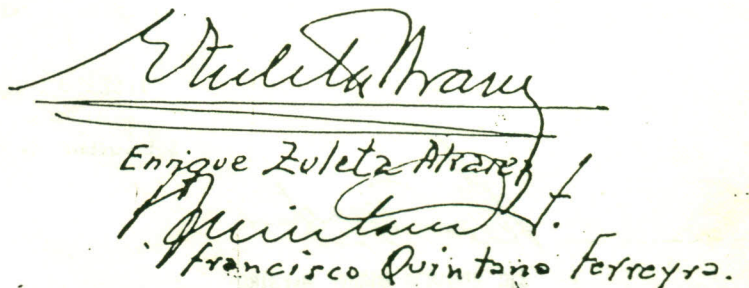 EZuleta Alvarez
Enrique Zuleta Alvarez
Quintano f.
Francisco Quintano Ferreyra.